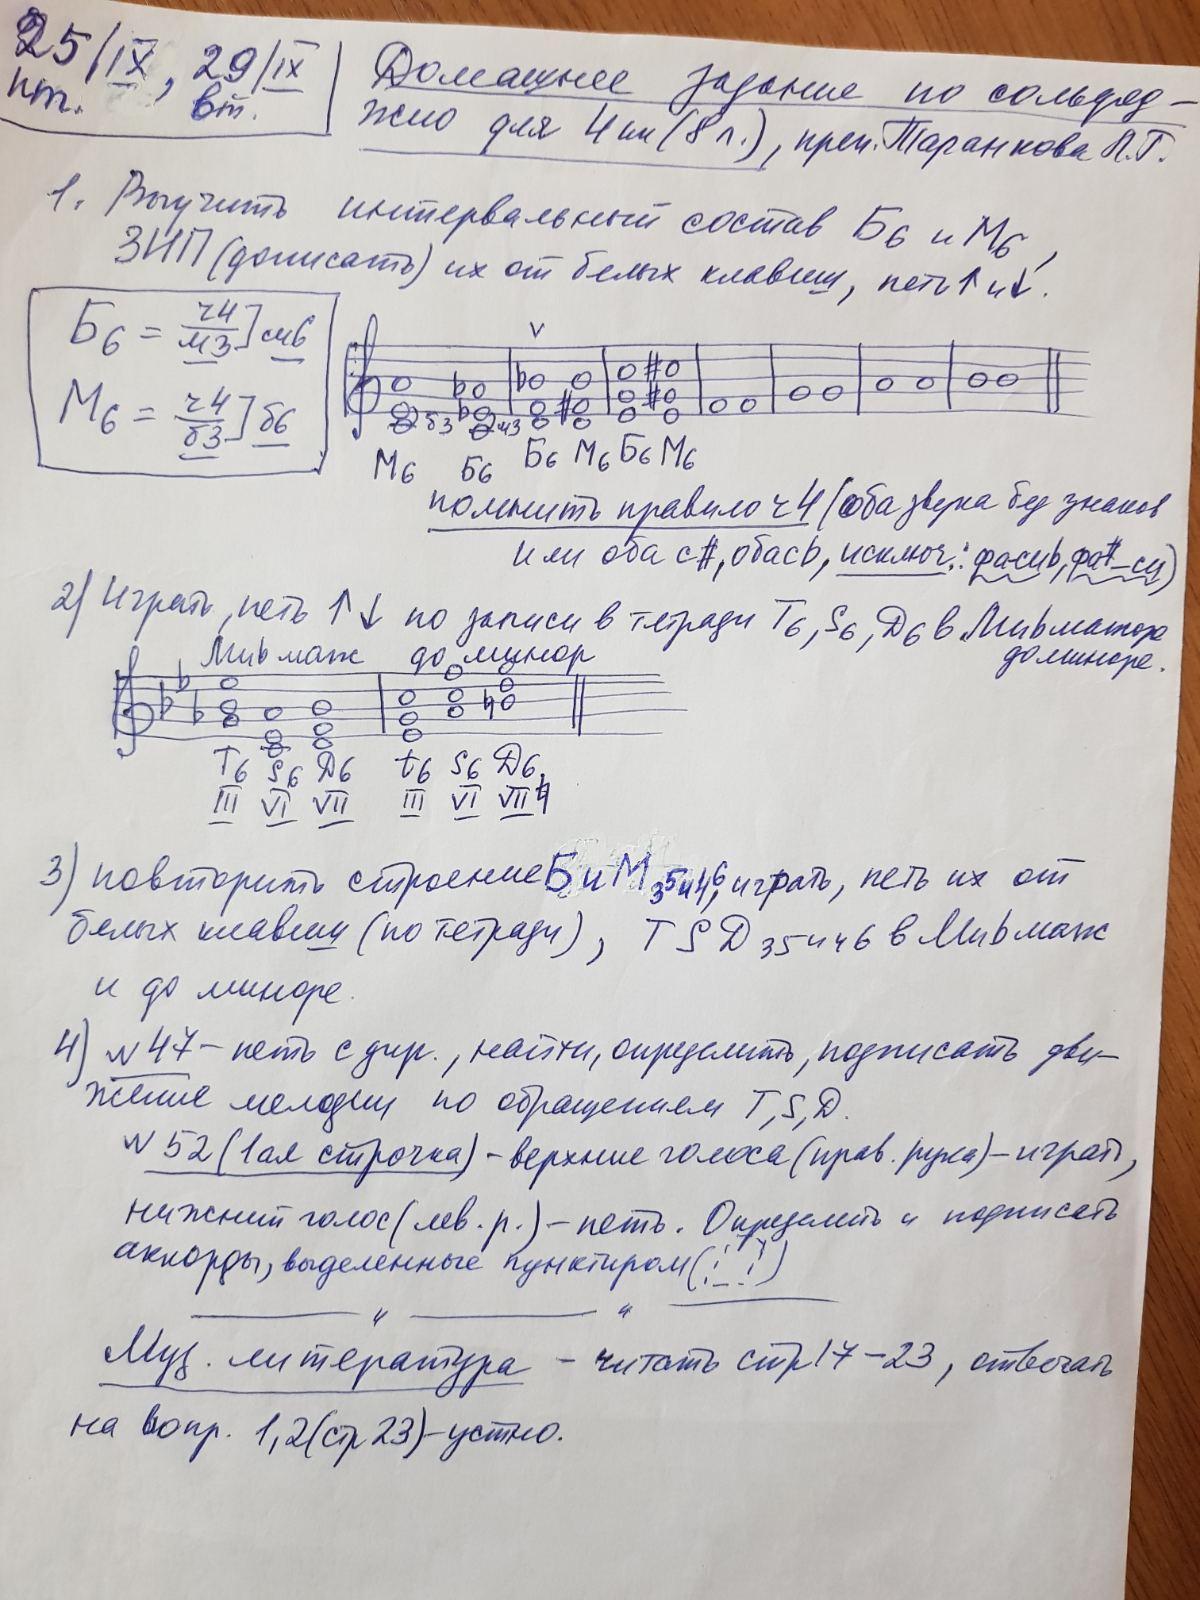 25/IX, 29/IX
пт. вт.
Домашнее задание по сольфед-
жио для 4 кл (8 л.), преп. Таранкова Л.Г.
1. Выучить интервальный состав Б6 и М6,
ЗИП (дописать) их от белых клавиш, петь ↑ и ↓.
Б6 = ч4/м3 ] м6
М6 = ч4/б3 ] б6
б3 м3
М6 Б6 Б6 М6 Б6 М6
помнить правило ч4 (оба звука без знаков
или оба с #, оба с b, исключ.: фа-сиb, фа#-си)
2) Играть, петь ↑ ↓ по записи в тетради Т6, S6, Д6 в Миb мажоре
до миноре.
Миb маж до минор
Т6 S6 Д6 t6 S6 Д6
III VI VII III VI VII♮
3) повторить строение Б и М 35 и 46, играть, петь их от
белых клавиш (по тетради), Т S Д 35 и 46 в Миb маж
и до миноре.
4) №47 – петь с дир., найти, определить, подписать дви-
жение мелодии по обращением Т, S, Д.
№52 (1ая строчка) – верхние голоса (прав. рука) – играть,
нижний голос (лев. р.) – петь. Определить и подписать
аккорды, выделенные пунктиром ( )
Муз. литература – читать стр 17–23, отвечать
на вопр. 1,2 (стр 23) – устно.